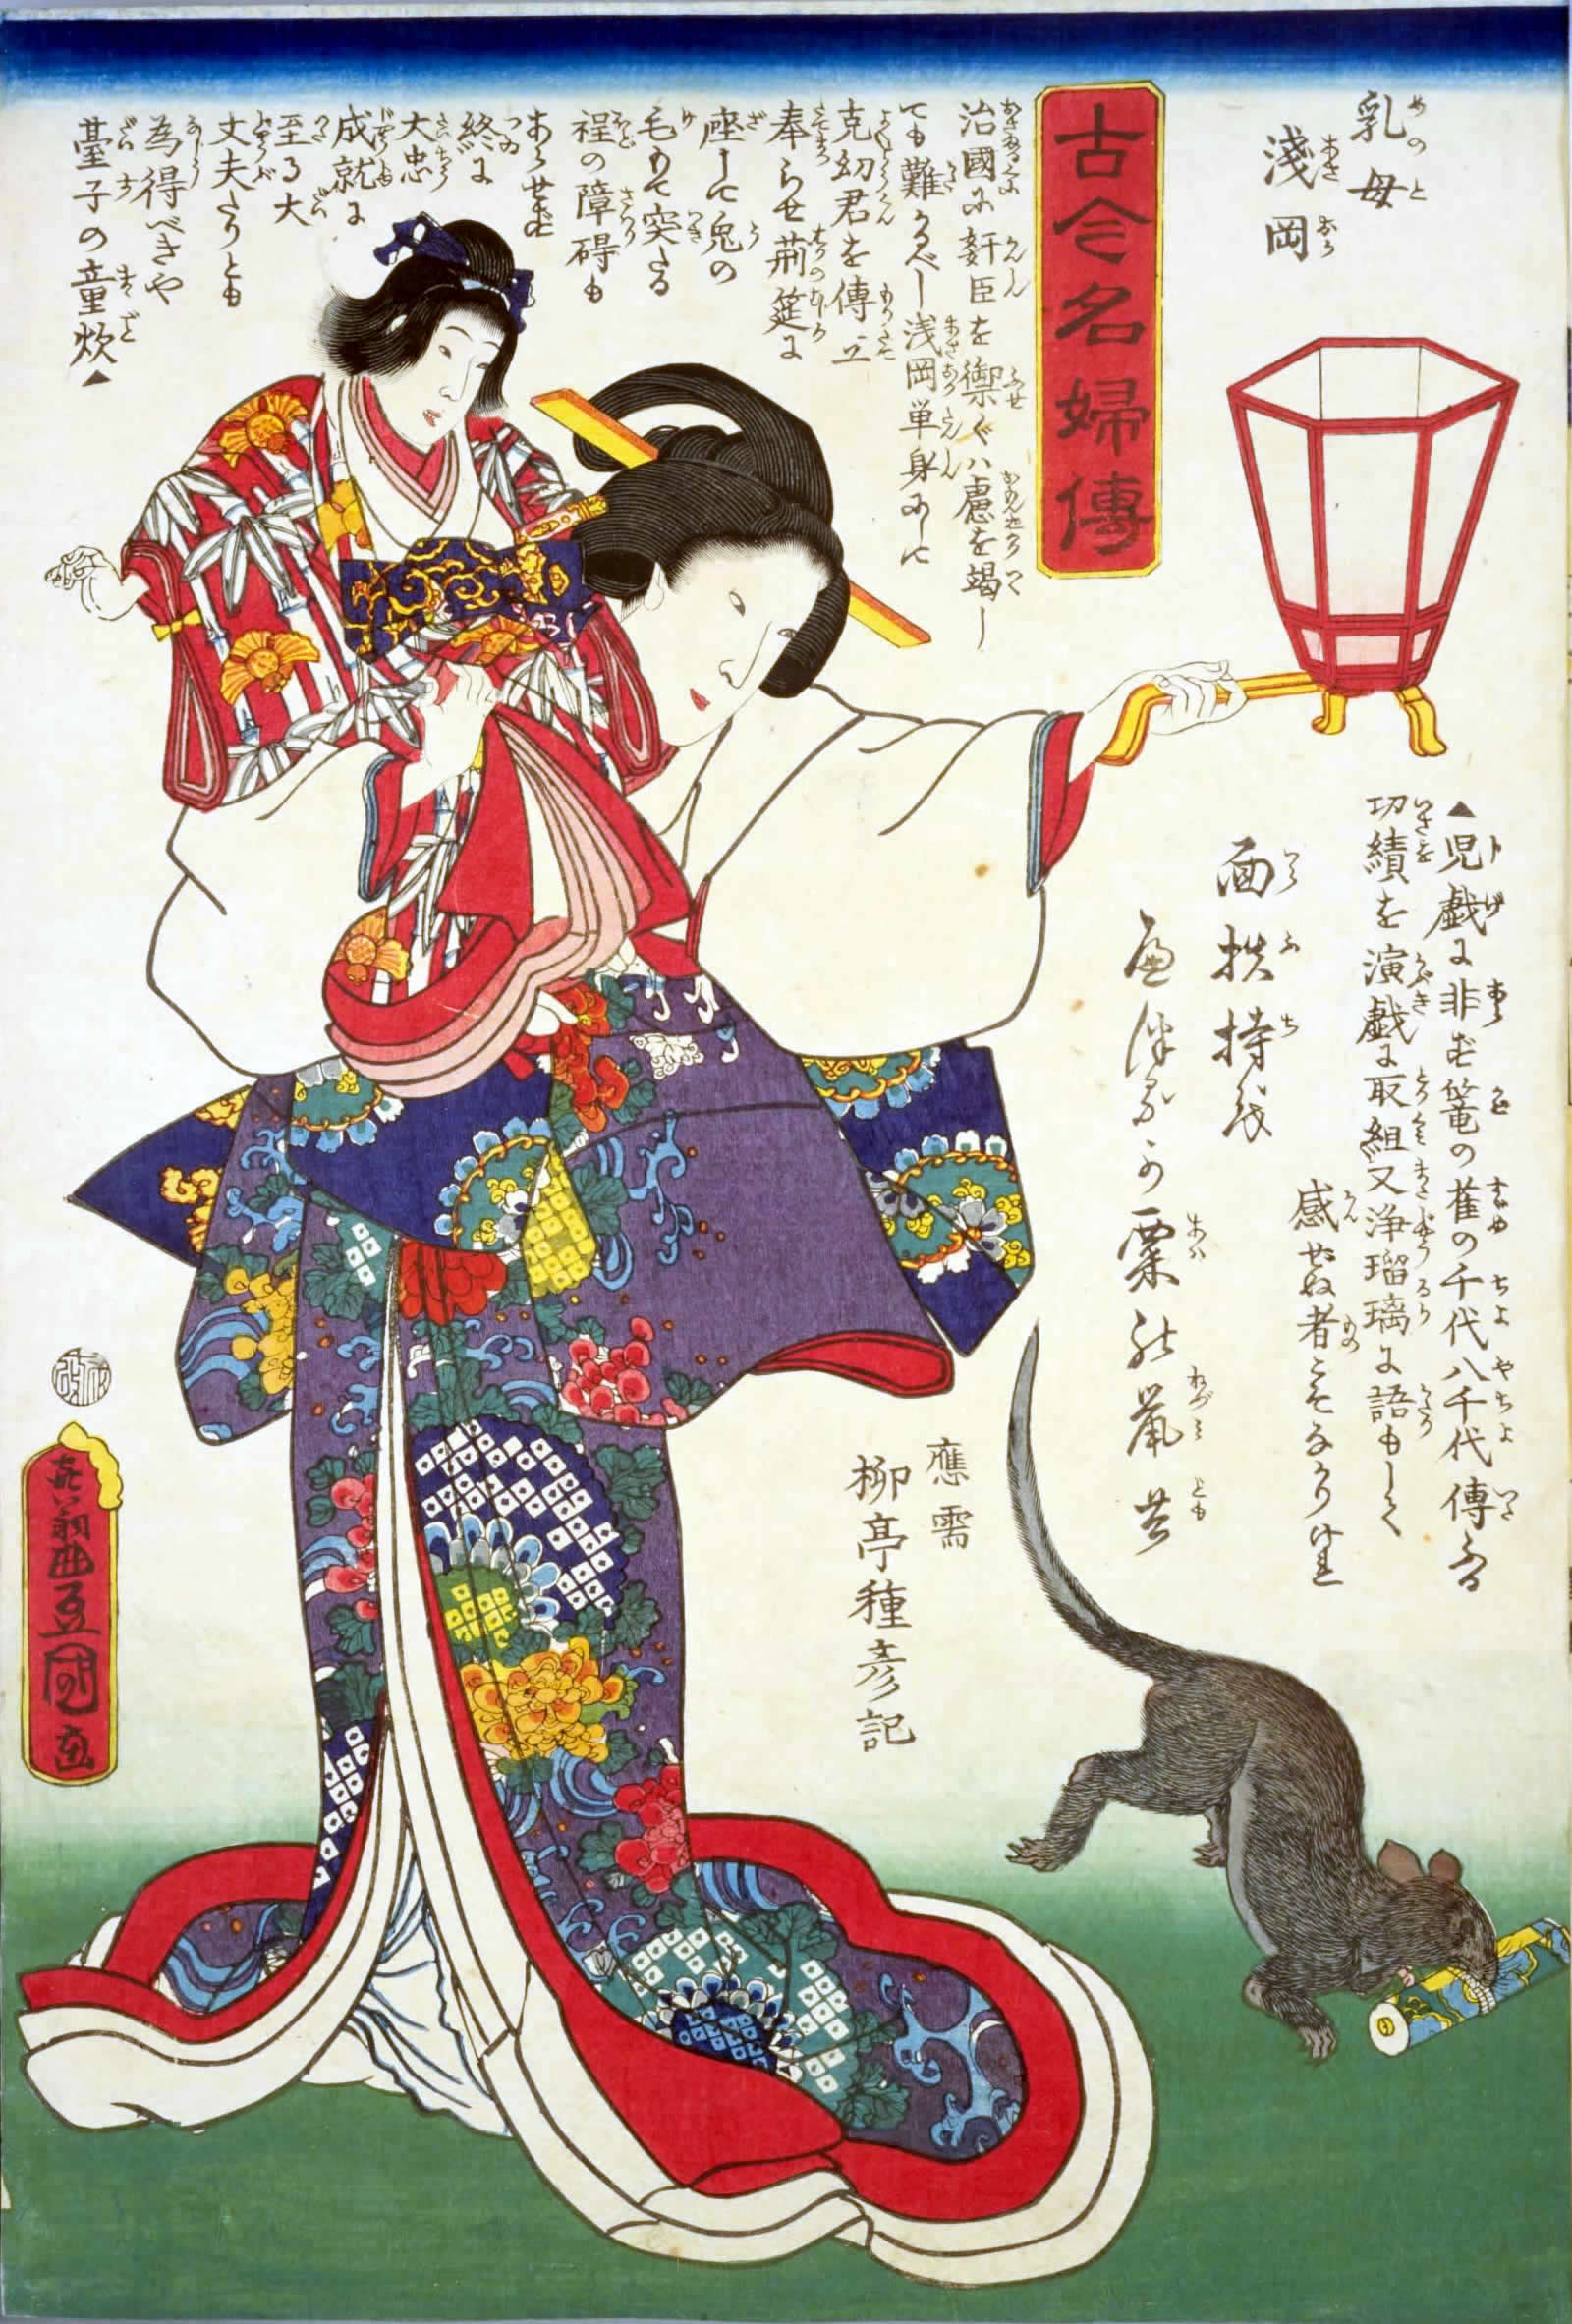 古今名婦傳
乳母
淺岡
治國に奸臣を禦ぐハ慮を竭し
ても難かるべし浅岡単身にして
克幼君を傳立
奉らせ荆筵に
座して兎の
毛もて突たる
程の障碍も
あらせず
終に
大忠
成就に
至る大
丈夫たりとも
為得べきや
臺子の童炊▲
▲児戯に非ず篭の雀の千代八千代傳ふる
功績を演戯に取組又浄瑠璃に語もして
感せぬ者こそなかりけれ
面扶持
粟
鼠
應需
柳亭種彦記
喜翁豆國画